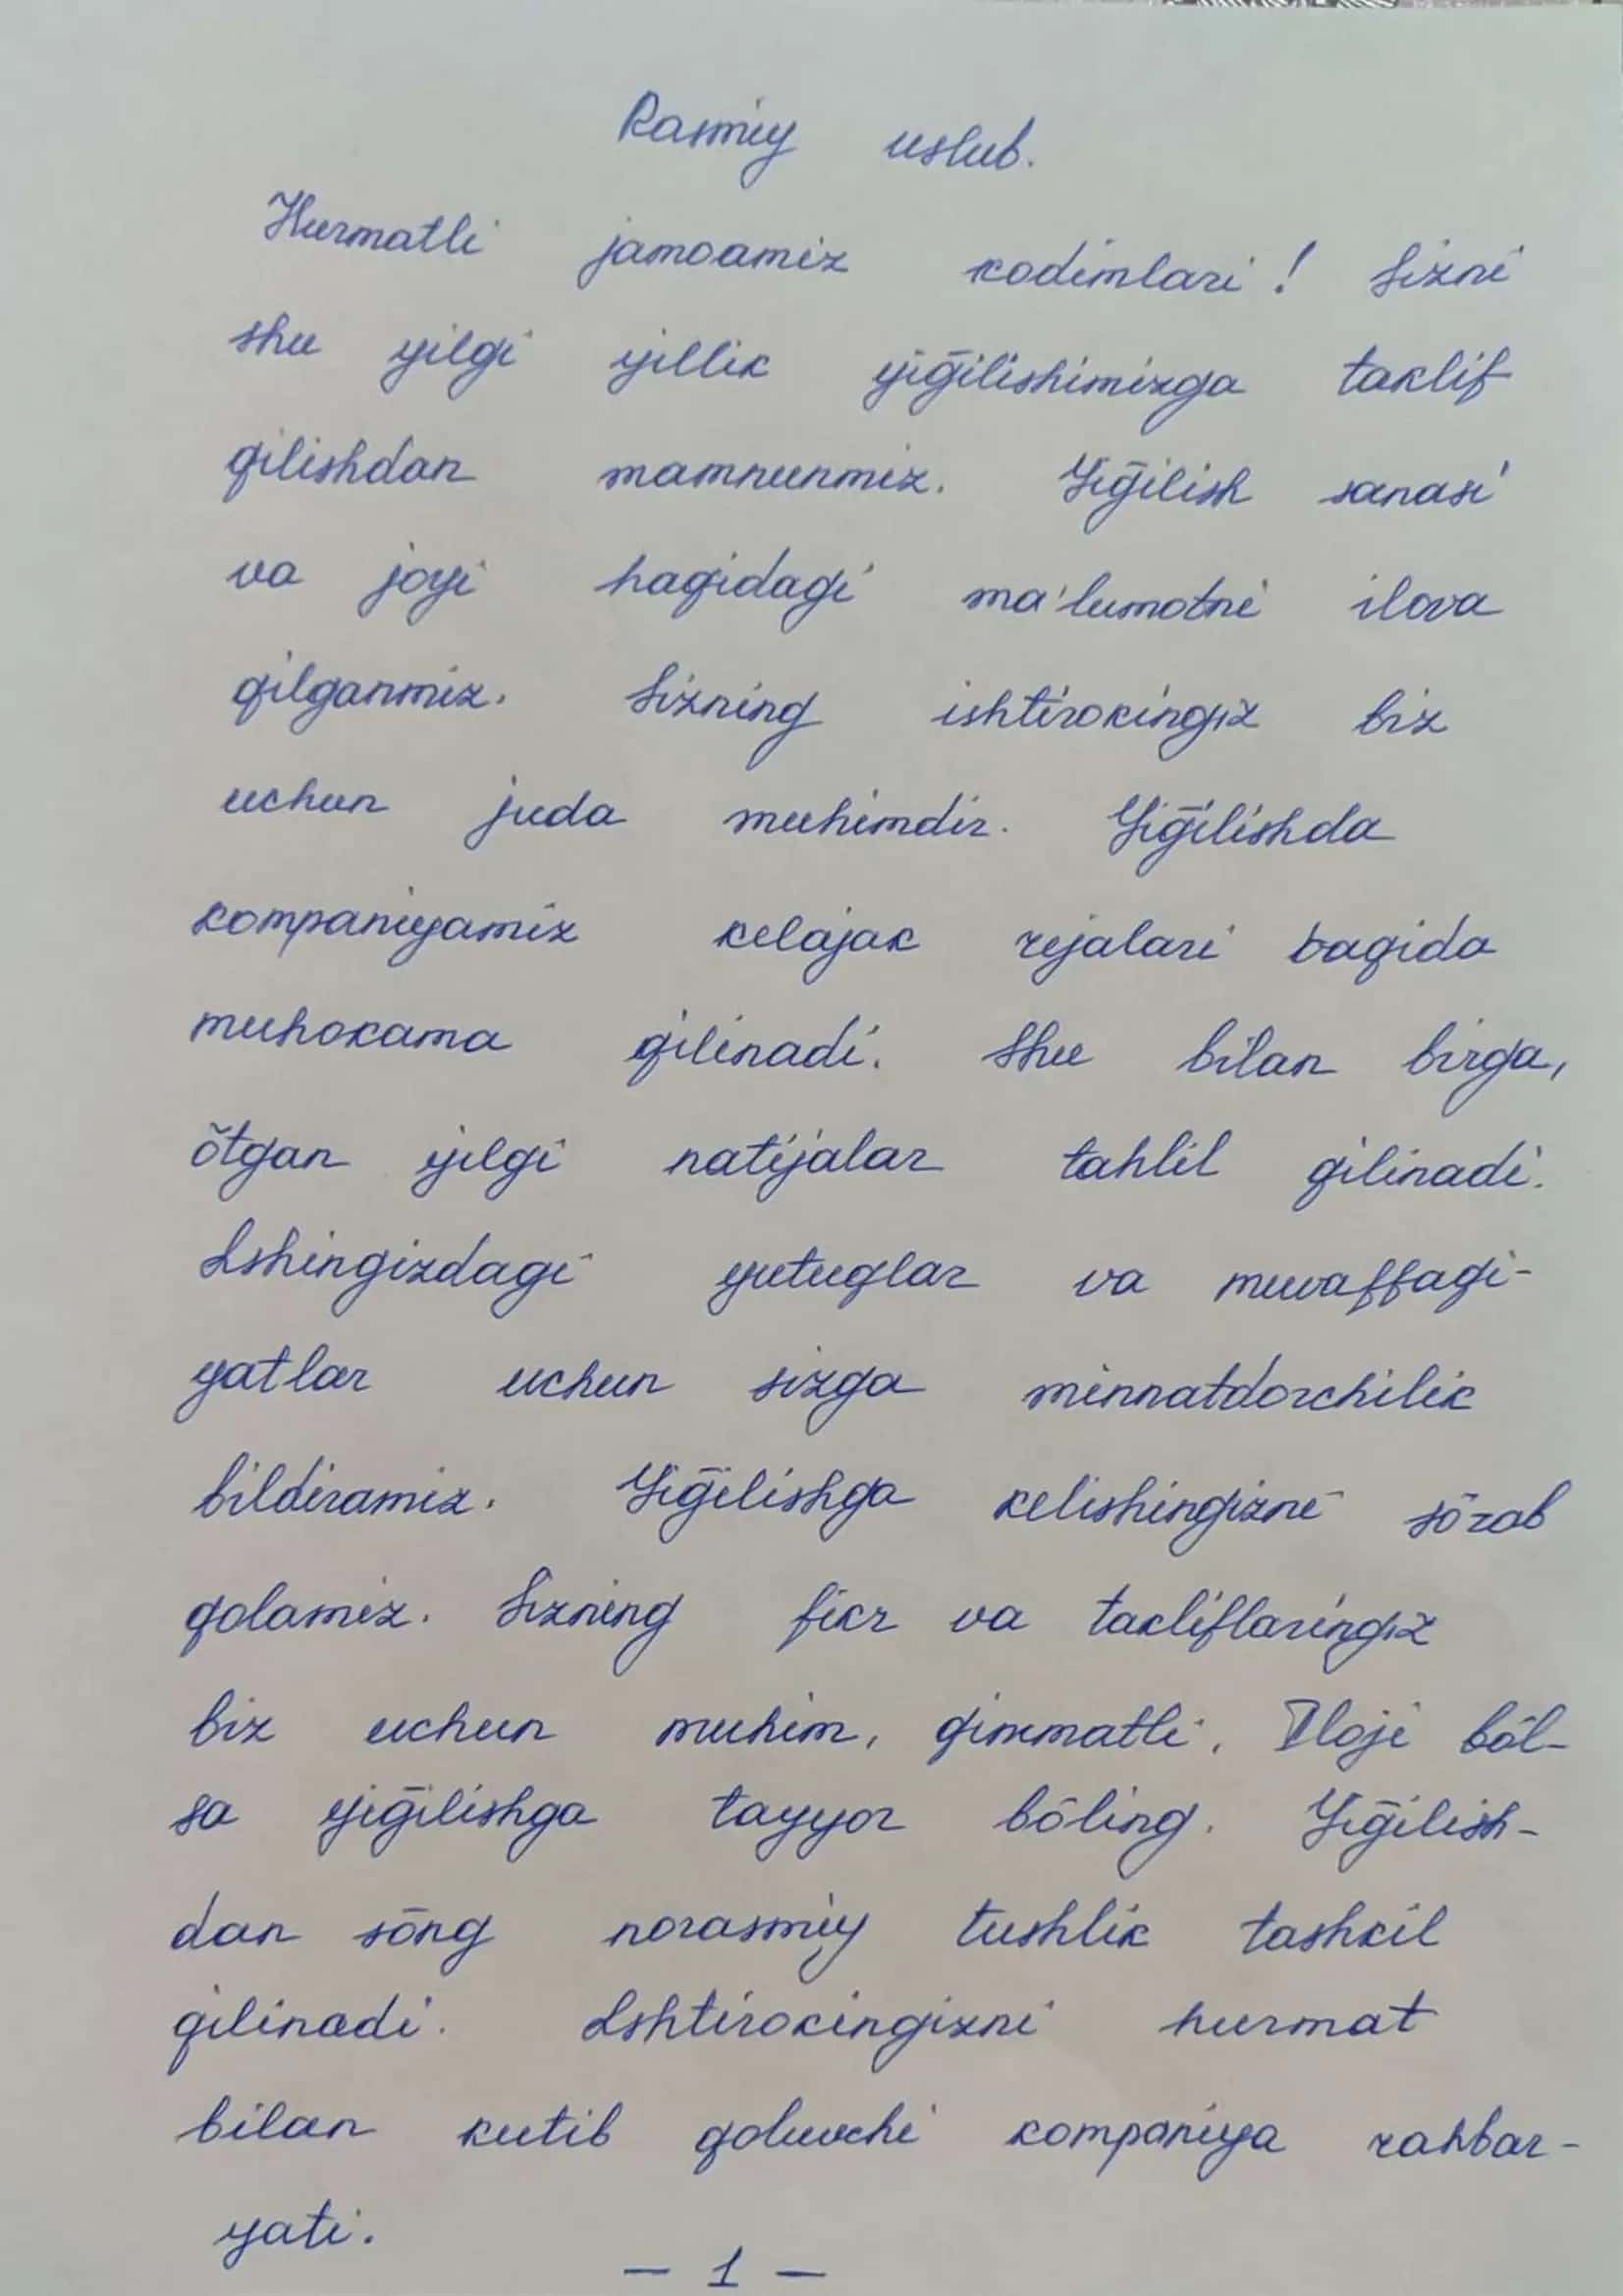 Rasmiy uslub.
Hurmatli jamoamiz xodimlari! Sizni
shu yilgi yillik yiğilishimizga taklif
qilishdan mamnunmiz. Yiğilish sanasi
va joyi haqidagi ma'lumotni ilova
qilganmiz. Sizning ishtirokingiz biz
uchun juda muhimdir. Yiğilishda
kompaniyamiz kelajak rejalari baqida
muhokama qilinadi. Shu bilan birga,
õtgan yilgi natijalar tahlil qilinadi.
Ishingizdagi yutuqlar va muvaffaqi-
yatlar uchun sizga minnatdorchilik
bildiramiz. Yiğilishga kelishingizni sõrab
qolamiz. Sizning fikr va takliflaringiz
biz uchun muhim, qimmatli. Iloji bõl-
sa yiğilishga tayyor bõling. Yiğilish-
dan sõng norasmiy tushlik tashkil
qilinadi. Ishtirokingizni hurmat
bilan kutib qoluvchi kompaniya rahbar-
yati.
- 1 -